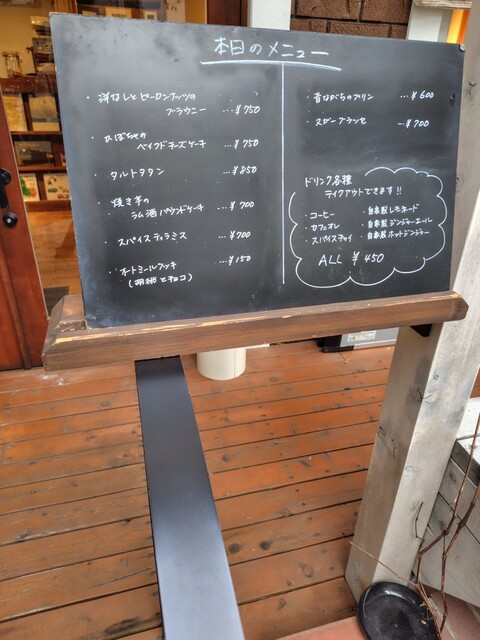 本日のメニュー
・洋なしとピーカンナッツの
ブラウニー …¥750
・かぼちゃの
ベイクドチーズケーキ …¥750
・タルトタタン …¥850
・焼き芋の
ラム酒パウンドケーキ …¥700
・スパイスティラミス …¥700
・オートミールクッキー …¥150
(胡桃とチョコ)
・昔ながらのプリン …¥600
・スガーブラッセ …¥700
ドリンク各種
テイクアウトできます!!
・コーヒー
・カフェオレ
・スパイスチャイ
・自家製レモネード
・自家製ジンジャーエール
・自家製ホットジンジャー
ALL ¥450